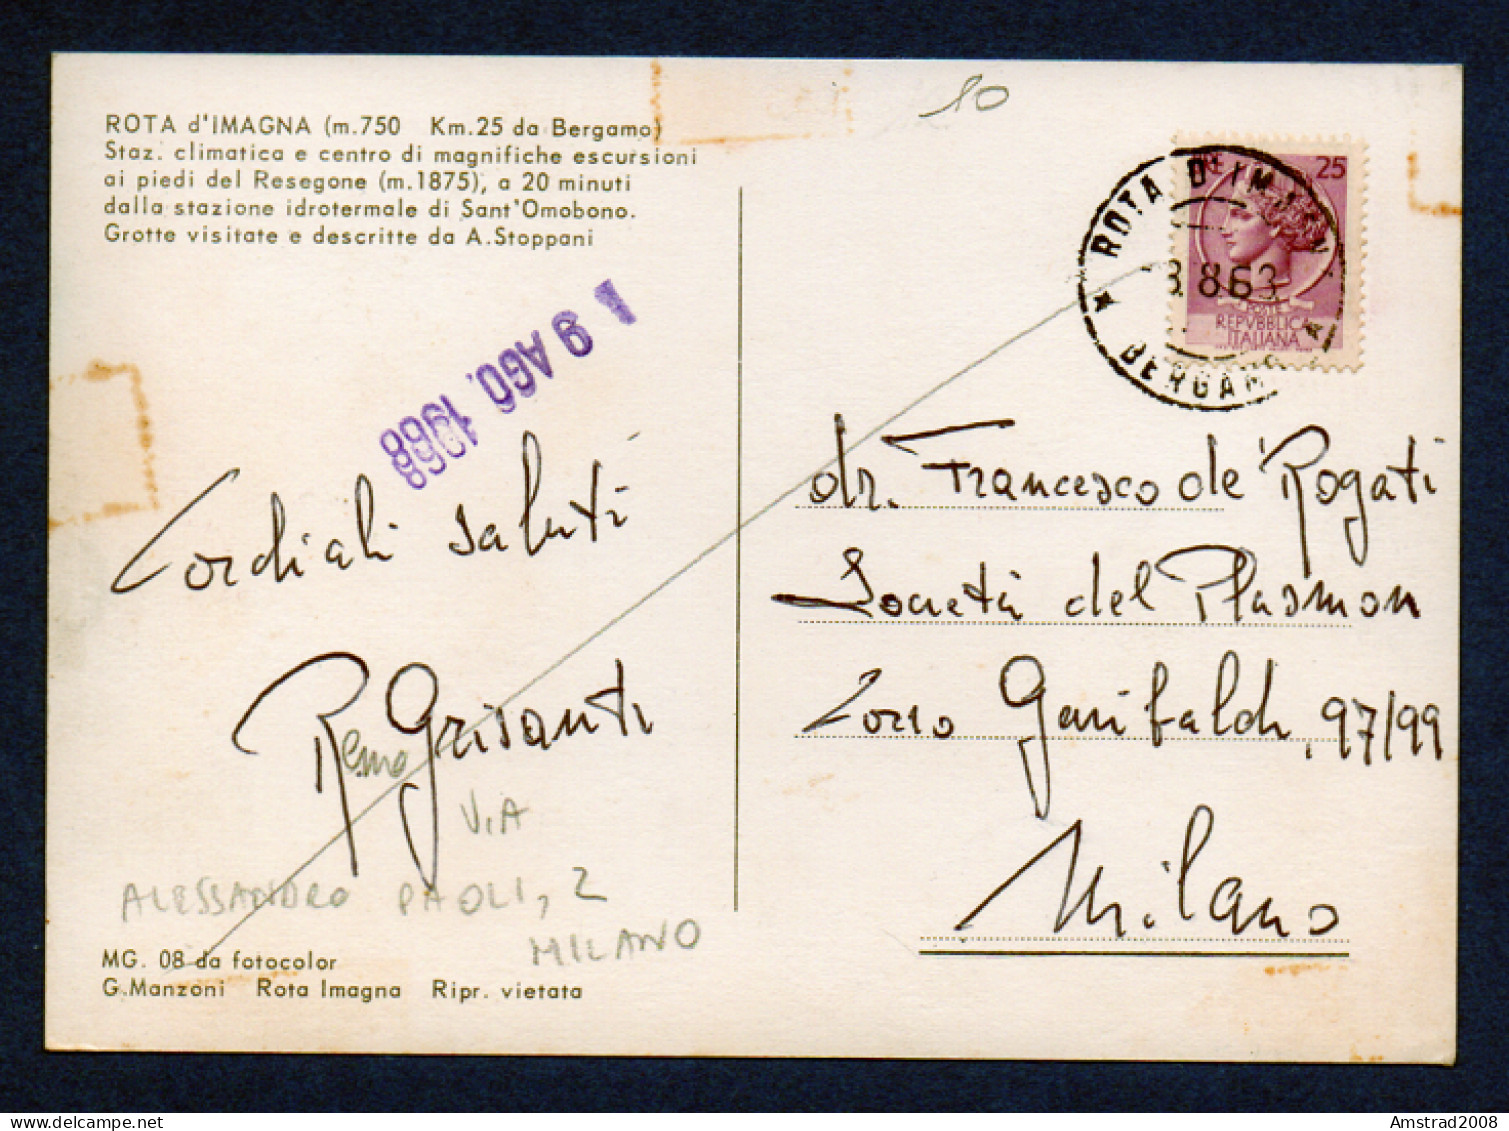 ROTA d'IMAGNA (m.750 Km.25 da Bergamo)
Staz. climatica e centro di magnifiche escursioni
ai piedi del Resegone (m.1875), a 20 minuti
dalla stazione idrotermale di Sant'Omobono.
Grotte visitate e descritte da A.Stoppani
10
25
REPVBBLICA
ITALIANA
ROTA D'IMAGN
8.63
BERGAM
19 AGO. 1968
Cordiali saluti
Remo Grisanti
VIA
ALESSANDRO PAOLI, 2
MILANO
dr. Francesco de Rogati
Società del Plasmon
Corso Garibaldi, 97/99
Milano
MG. 08 da fotocolor
G.Manzoni Rota Imagna Ripr. vietata
Amstrad2008